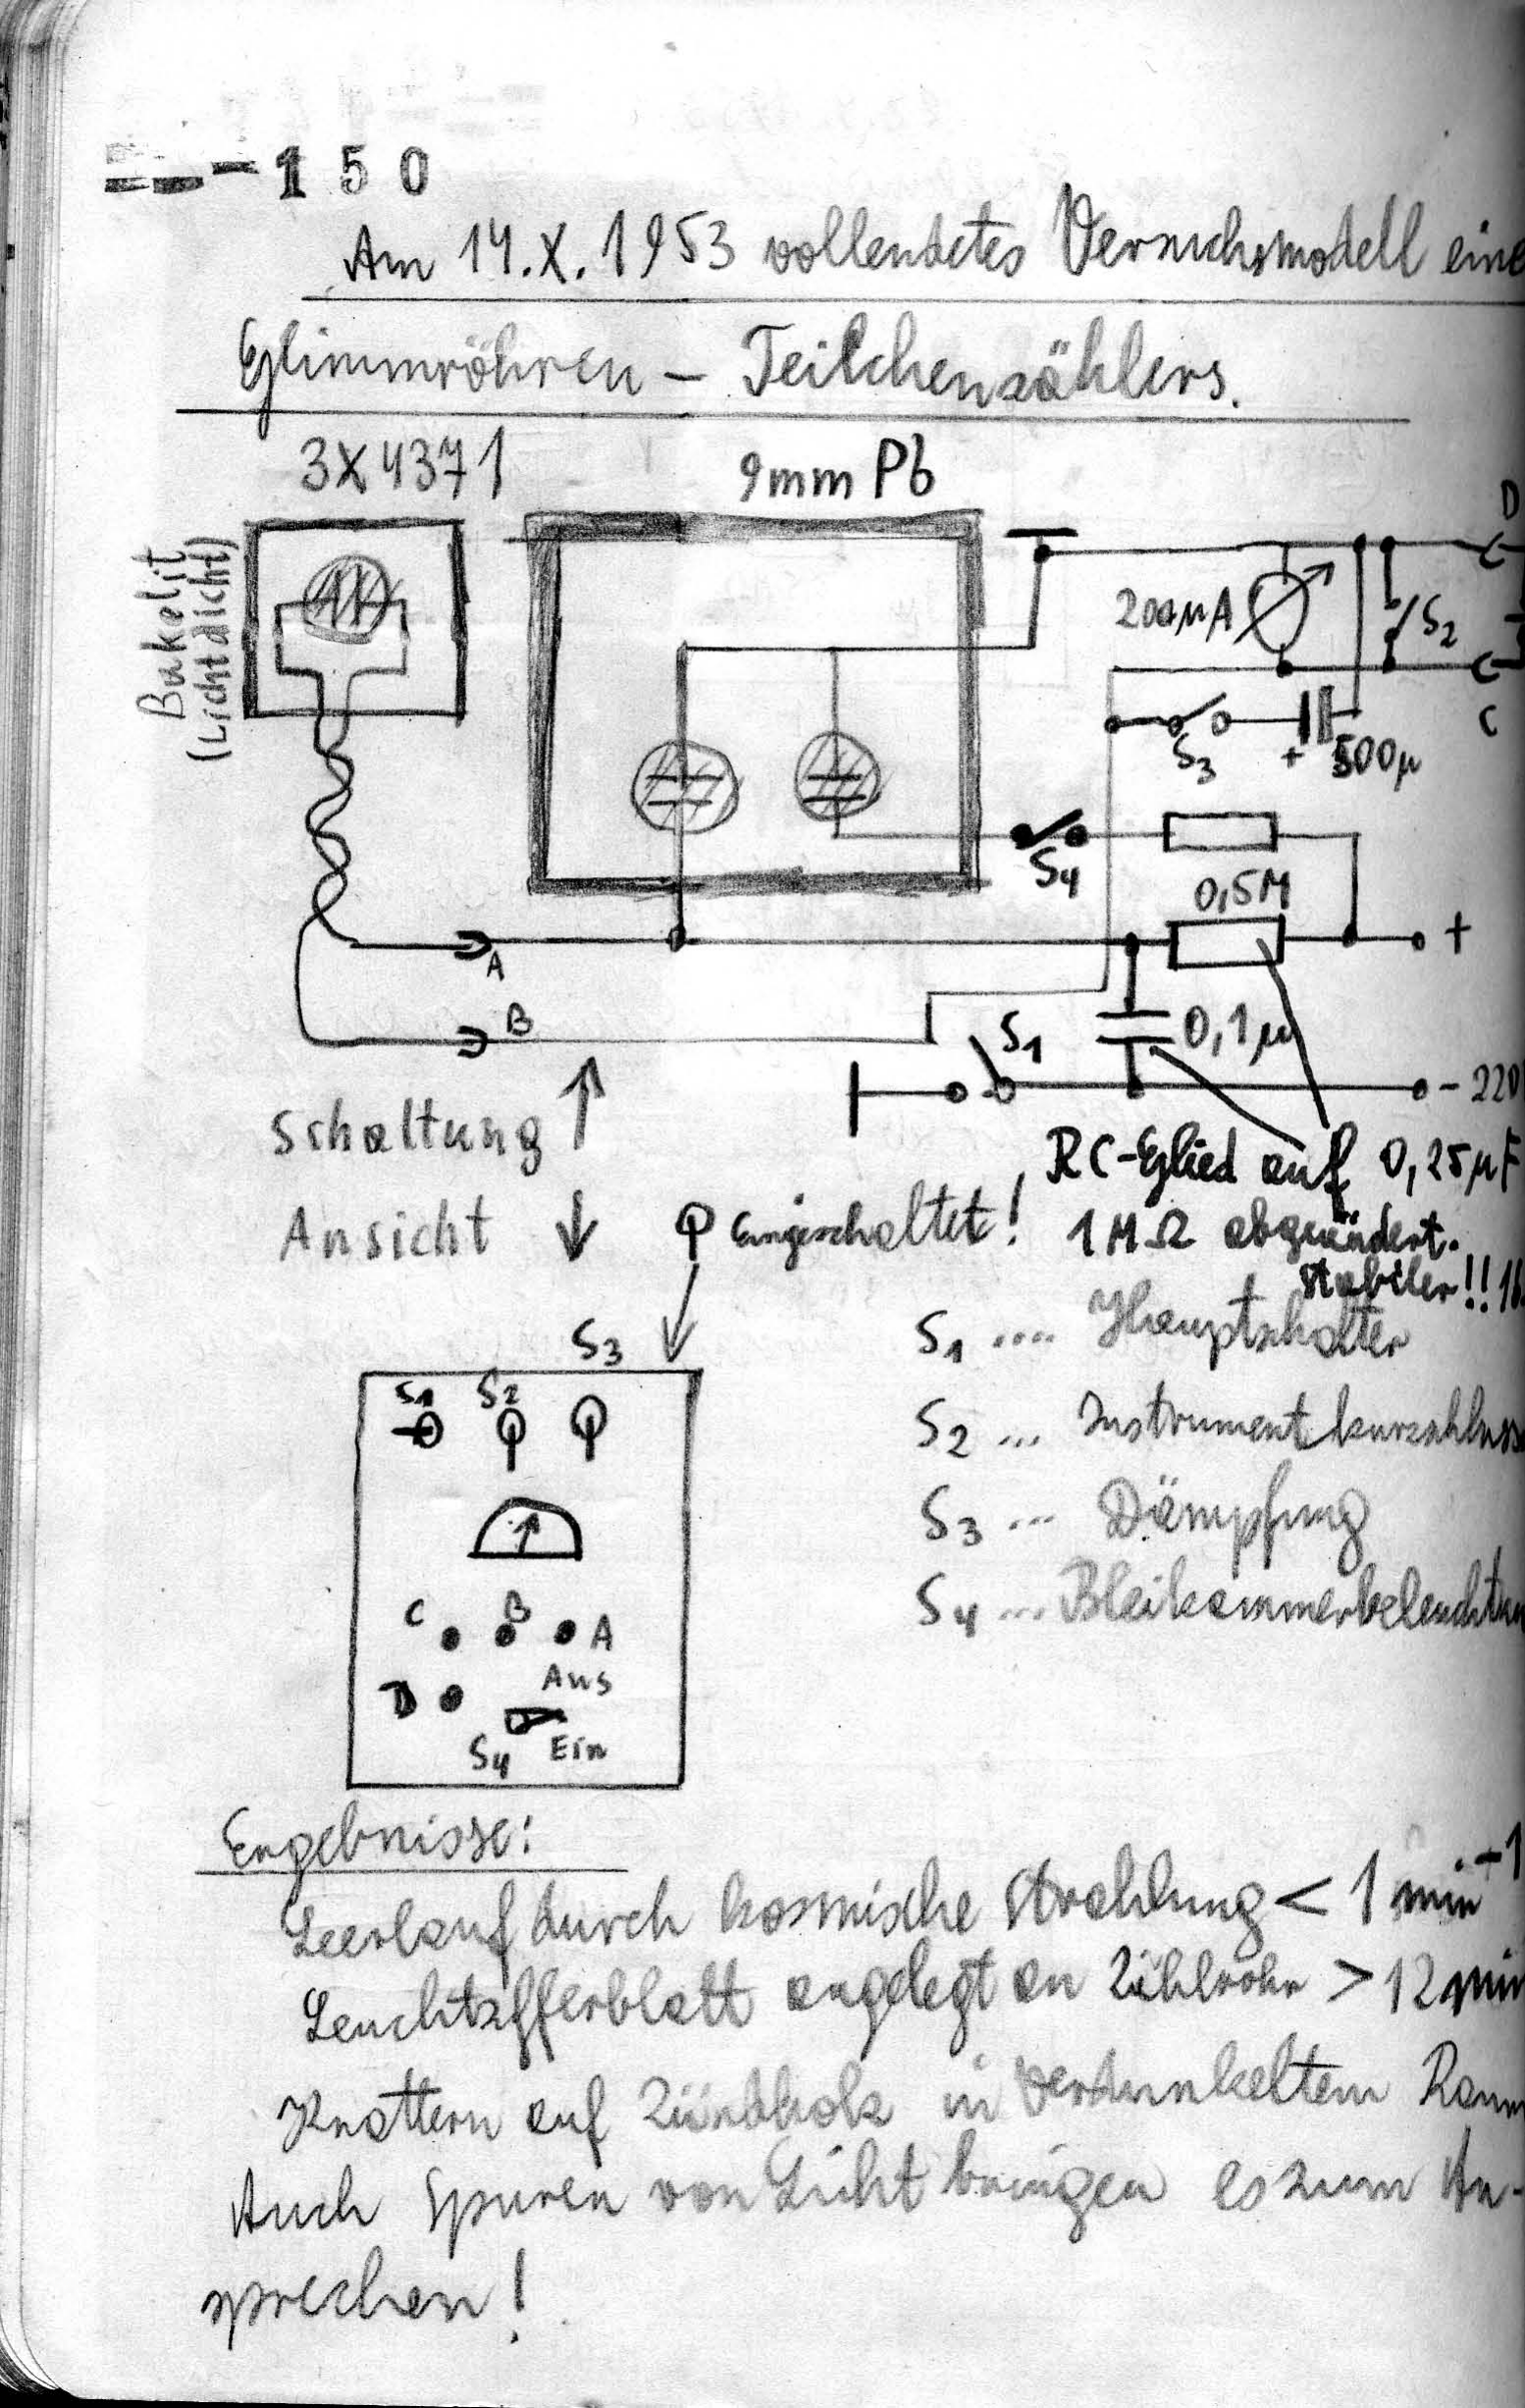 150
Am 14.X.1953 vollendetes Versuchsmodell eine
Glimmröhren – Teilchenzählers.
3X4371
9mm Pb
Bakelit
(Lichtdicht)
D
200µA
S2
C
S3
+
500µ
S4
0,5M
+
A
B
S1
0,1µ
- 220
Schaltung ↑
RC-Glied auf 0,25µF
Ansicht ↓
Eingeschaltet!
1MΩ abgeändert.
stabiler!!
S3
S1 .... Hauptschalter
S1 S2
S2 ... Instrumentkurzschluss
S3 ... Dämpfung
S4 ... Bleikammerbeleuchtun
C B A
Aus
D
S4 Ein
Ergebnisse:
Leerlauf durch kosmische Strahlung < 1 min-1
Leuchtzifferblatt angelegt an Zählrohr > 12 min
Knattern auf Zündholz in verdunkeltem Raum
Auch Spuren von Licht bringen es zum An-
sprechen!